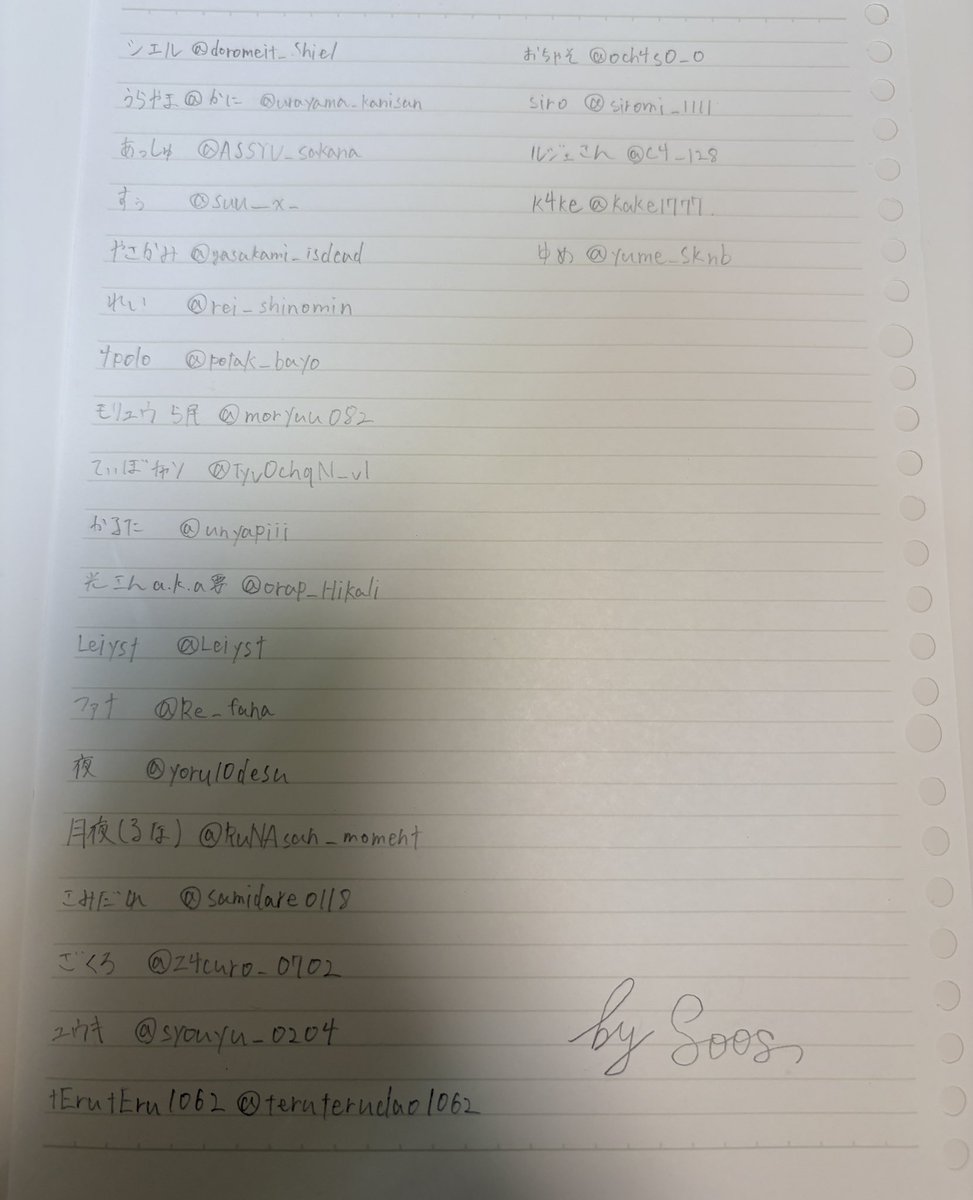 シエル @doromeit_shiel
うらやま@かに @urayama_kanisan
あっしゅ @ASSYU_sakana
すぅ @suu__x_
やさかみ @yasakami_isdead
れい @rei_shinomin
@potak_bayo
モリュウ ら民 @moryuu082
てぃぼチャン @TyvOchqN_vl
かるた @unyapiii
光さん a.k.a @orap_Hikali
Leiyst @Leiyst
ファナ @Re_fana
夜 @yoru10desu
月夜(るな) @RuNAsan_moment
さみだれ @samidare0118
ざくろ @z4curo_0702
ユウキ @syouyu_0204
tErutEru1062 @teruterudao1062
おちゃそ @och4s0_0
siro @siromi_1111
ルジェさん @c4_128
k4ke @kake1777
ゆめ @yume_sknb
by Soos